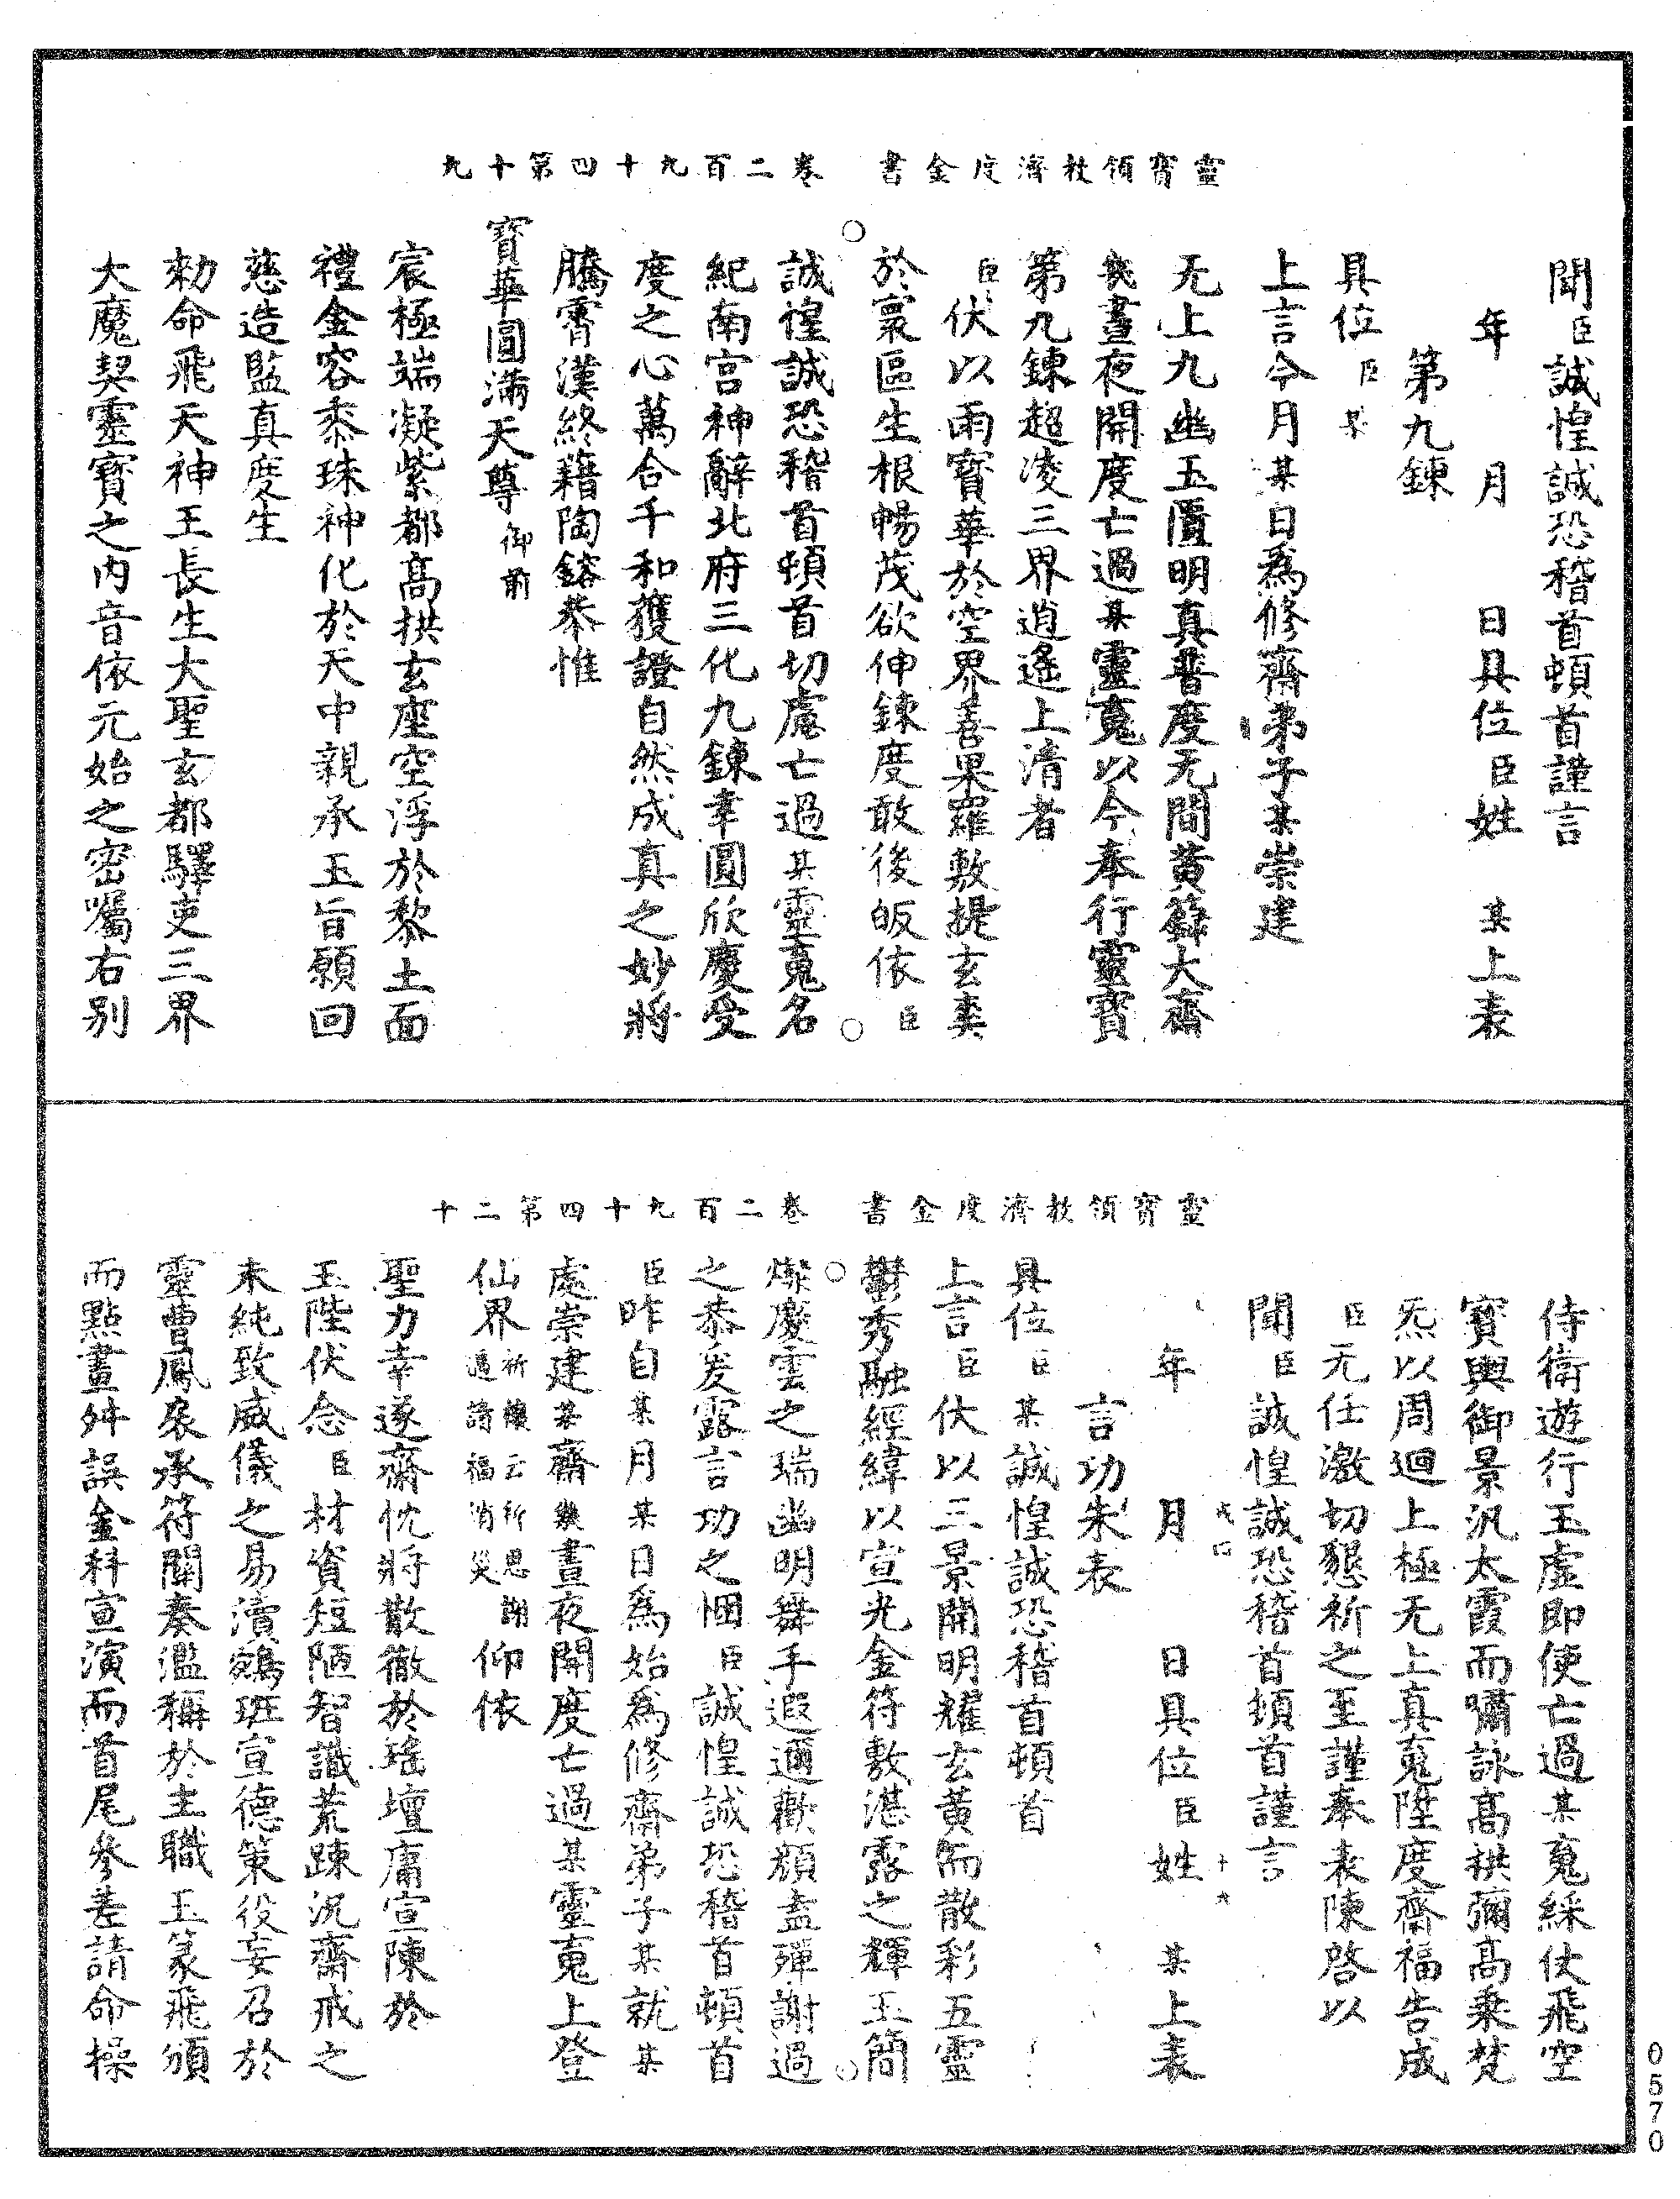 靈寶領教濟度金書 卷二百九十四第十九
聞臣誠惶誠恐稽首頓首謹言
年 月 日具位臣姓 某上表
第九鍊
具位臣某
上言今月某日爲修齋弟子某崇建
无上九幽玉匱明真普度无間黃籙大齋
幾晝夜開度亡過某靈䰟以今奉行靈寶
第九鍊超凌三界逍遙上清者
臣伏以雨寶華於空界善果羅敷提玄奬
於寰區生根暢茂欲伸鍊度敢後皈依臣
誠惶誠恐稽首頓首切慮亡過某靈䰟名
紀南宮神辭北府三化九鍊幸圓欣慶受
度之心萬合千和獲證自然成真之妙將
騰霄漢終藉陶鎔恭惟
寶華圓滿天尊御前
宸極端凝紫都高拱玄座空浮於黎土面
禮金容黍珠神化於天中親承玉旨願回
慈造監真度生
勑命飛天神王長生大聖玄都驛吏三界
大魔契靈寶之內音依元始之密囑右別
靈寶領教濟度金書 卷二百九十四第二十
侍衛遊行玉虛即使亡過某䰟綵仗飛空
寶輿御景汎太霞而嘯詠高拱彌高乘梵
炁以周迴上極无上真䰟陞度齋福告成
臣无任激切懇祈之至謹奉表陳啓以
聞臣誠惶誠恐稽首頓首謹言
年 月 日具位臣姓 某上表
言功朱表
具位臣某誠惶誠恐稽首頓首
上言臣伏以三景開明耀玄黃而散彩五靈
鬱秀融經緯以宣光金符敷湛露之輝玉簡
燦慶雲之瑞幽明舞手遐邇歡顏盍殫謝過
之恭爰露言功之悃臣誠惶誠恐稽首頓首
臣昨自某月某日爲始爲修齋弟子某就某
處崇建某齋幾晝夜開度亡過某靈䰟上登
仙界祈禳云祈恩謝過請福消災仰依
聖力幸遂齋忱將散徹於瑤壇庸宣陳於
玉陛伏念臣材資短陋智識荒踈況齋戒之
未純致威儀之易瀆鵷班宣德策役妄召於
靈曹鳳扆承符關奏濫稱於主職玉篆飛頒
而點畫舛誤金科宣演而首尾參差請命操
0570